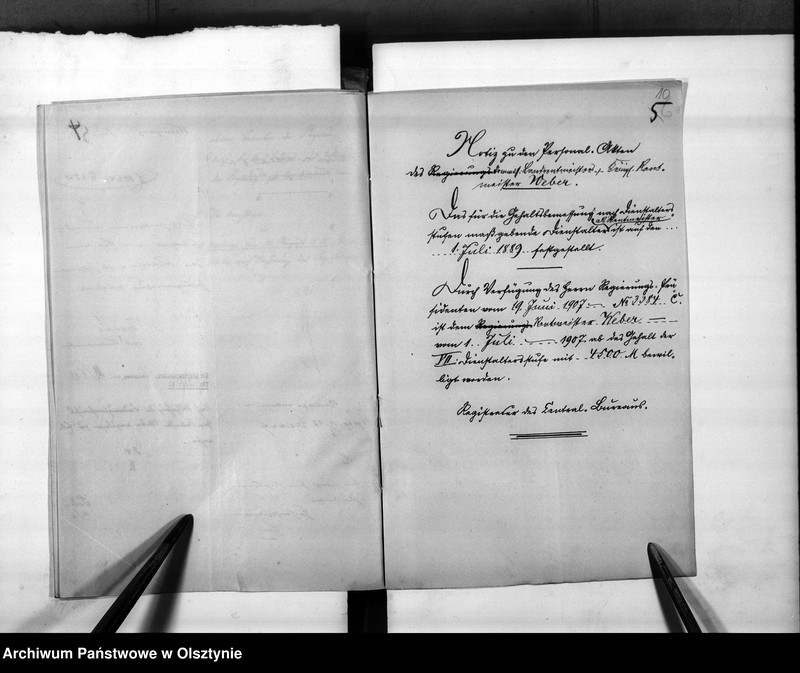 54
10
5
Notiz zu den Personal-Akten
des Regierungs
meister Weber.
Das für die Gehaltsbemessung nach Dienstalters-
als Rentmeister
stufen maßgebende Dienstalter ist auf den
1. Juli 1889 festgestellt.
Durch Verfügung des Herrn Regierungs-Prä-
sidenten vom 19. Juni 1907 No 3384 C.
ist dem Regierungs Rentmeister Weber
vom 1. Juli 1907 ab das Gehalt der
VII. Dienstaltersstufe mit 4500 M bewil-
ligt worden.
Registratur des Central-Bureaus.
Archiwum Państwowe w Olsztynie